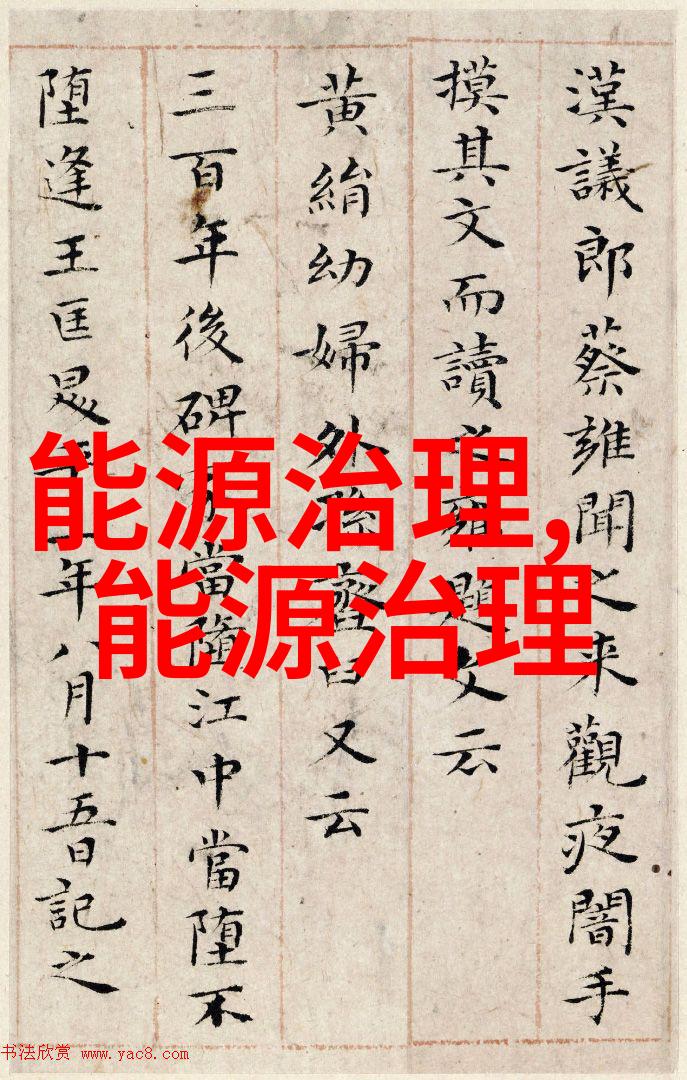 漢議郎蔡雍聞之来觀夜闇手
摸其文而讀之雍題文云
黄絹幼婦外孫臼又云
三百年後碑當隨江中當堕不
堕逢王匡年八月十五日記之
能源治理,
能源治理
书法欣赏 www.yac8.com